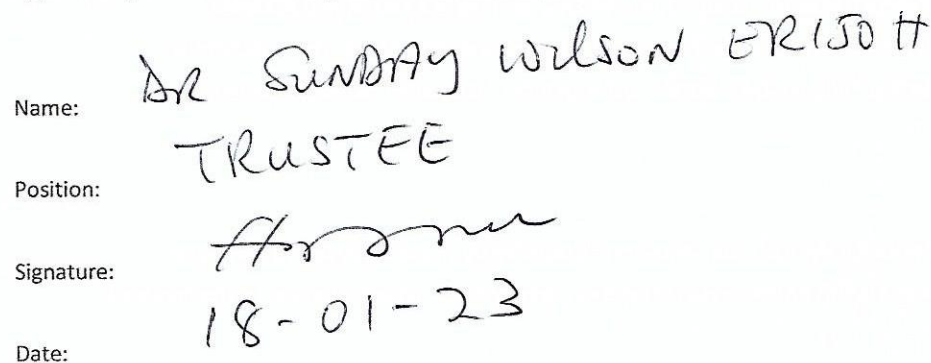 Name: DR SUNDAY WILSON ERIJOH
Position: TRUSTEE
Signature:
Date: 18-01-23